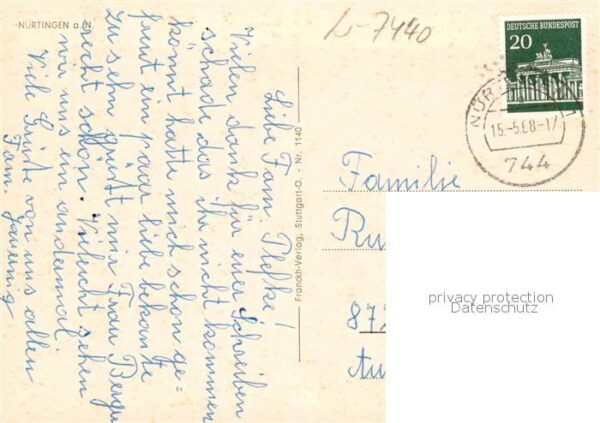 NÜRTINGEN a.N.
L-7440
DEUTSCHE BUNDESPOST
20
15.-5.68-17
744
Franckh-Verlag, Stuttgart-O. - Nr. 1140
Liebe Fam.
Vielen dank für euer Schreiben
schade das ihr nicht kommen
könnt hatte mich schon ge=
freut ein paar liebe bekante
zu sehn, mir Frau
recht schon. Vieleicht sehen
wir uns ein andermal
Viele Grüße von uns allen
Fam.
Familie
privacy protection
Datenschutz